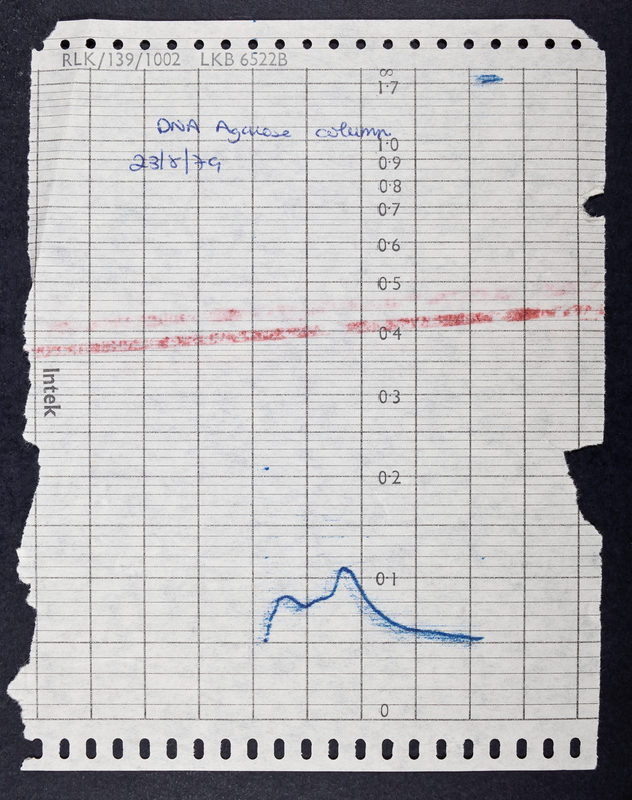 RLK/139/1002 LKB 6522B
∞
1.7
DNA Agarose column
1.0
23/8/79
0.9
0.8
0.7
0.6
0.5
0.4
0.3
Intek
0.2
0.1
0